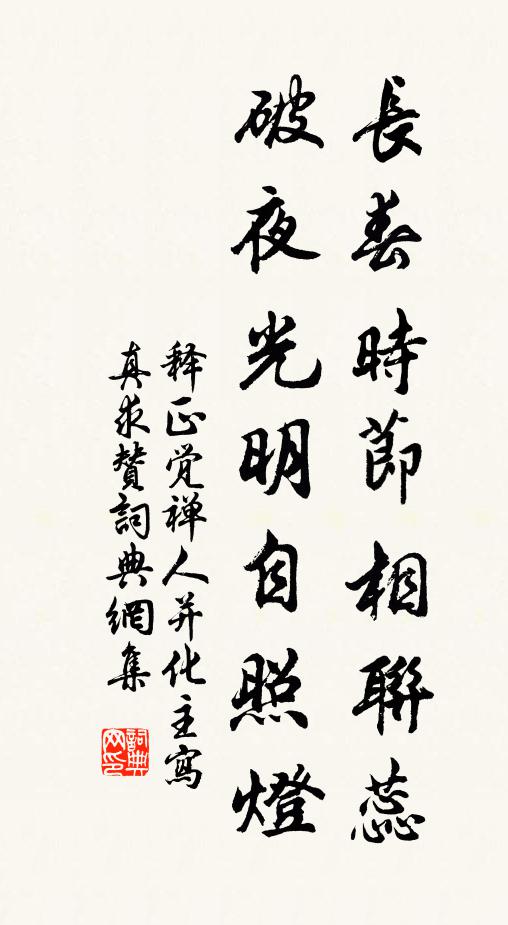 長春時節相聯蕊
破夜光明自照燈
释正觉禅人并化主寫
真求賛詞典網集
詞典网印